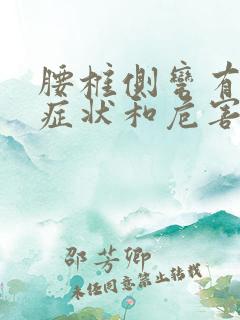 腰椎侧弯有
症状和危害
邵芳卿
未经同意禁止转载